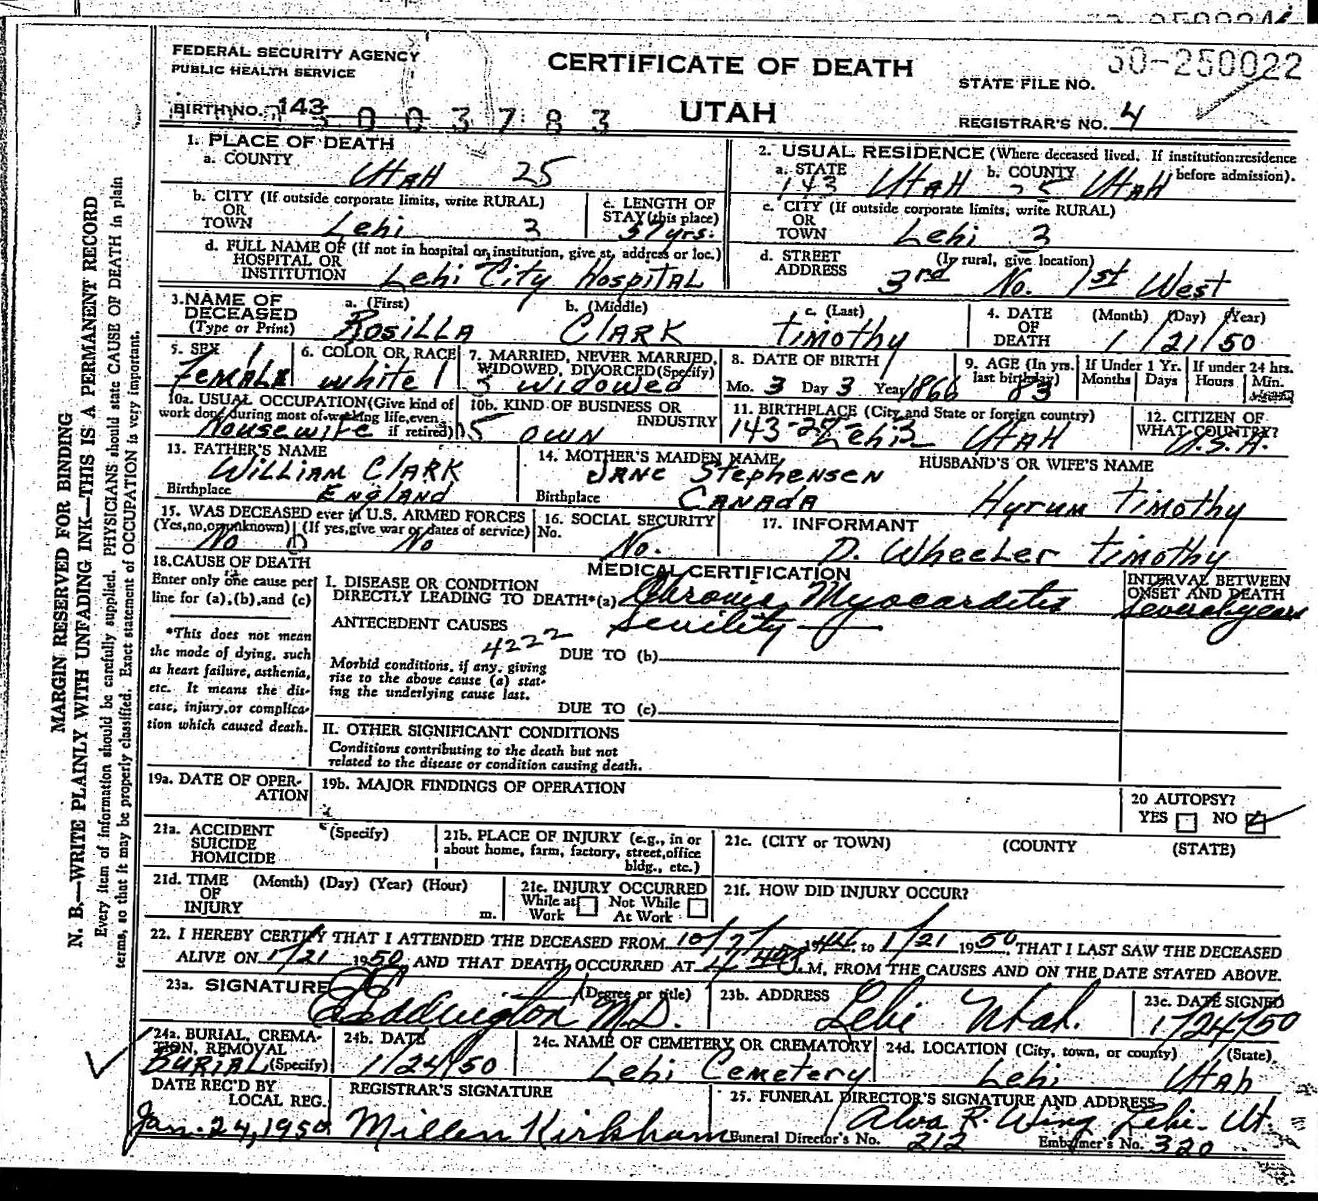 FEDERAL SECURITY AGENCY
PUBLIC HEALTH SERVICE
CERTIFICATE OF DEATH
UTAH
STATE FILE NO. 50-250022
BIRTH NO. 143
003783
REGISTRAR'S NO. 4
MARGIN RESERVED FOR BINDING
N. B.—WRITE PLAINLY WITH UNFADING INK—THIS IS A PERMANENT RECORD
Every item of information should be carefully supplied. PHYSICIANS should state CAUSE OF DEATH in plain
terms, so that it may be properly classified. Exact statement of OCCUPATION is very important.
1. PLACE OF DEATH
a. COUNTY
Utah 25
2. USUAL RESIDENCE (Where deceased lived. If institution:residence
before admission).
a. STATE b. COUNTY
143 Utah 25 Utah
b. CITY (If outside corporate limits, write RURAL)
OR
TOWN Lehi 3
c. LENGTH OF
STAY (this place)
57 yrs.
c. CITY (If outside corporate limits, write RURAL)
OR
TOWN Lehi 3
d. FULL NAME OF (If not in hospital or institution, give st. address or loc.)
HOSPITAL OR
INSTITUTION Lehi City Hospital
d. STREET (If rural, give location)
ADDRESS 3rd No. 1st West
3. NAME OF
DECEASED
(Type or Print)
a. (First) b. (Middle) c. (Last)
Rosilla Clark Timothy
4. DATE
OF
DEATH
(Month) (Day) (Year)
1/21/50
5. SEX
Female
6. COLOR OR RACE
White 1
7. MARRIED, NEVER MARRIED,
WIDOWED, DIVORCED (Specify)
3 Widowed
8. DATE OF BIRTH
Mo. 3 Day 3 Year 1866
9. AGE (In yrs.
last birthday)
83
If Under 1 Yr.
Months Days
If under 24 hrs.
Hours Min.
10a. USUAL OCCUPATION (Give kind of
work done during most of working life, even
if retired)
Housewife
10b. KIND OF BUSINESS OR
INDUSTRY
own
11. BIRTHPLACE (City and State or foreign country)
Lehi Utah
12. CITIZEN OF
WHAT COUNTRY?
U.S.A.
13. FATHER'S NAME
William Clark
Birthplace England
14. MOTHER'S MAIDEN NAME
Jane Stephensen
Birthplace Canada
HUSBAND'S OR WIFE'S NAME
Hyrum Timothy
15. WAS DECEASED ever in U.S. ARMED FORCES
(Yes, no, or unknown) (If yes, give war or dates of service)
No No
16. SOCIAL SECURITY
No. No.
17. INFORMANT
D. Wheeler Timothy
18. CAUSE OF DEATH
Enter only one cause per
line for (a), (b), and (c)
*This does not mean
the mode of dying, such
as heart failure, asthenia,
etc. It means the dis-
ease, injury, or complica-
tion which caused death.
MEDICAL CERTIFICATION
I. DISEASE OR CONDITION
DIRECTLY LEADING TO DEATH*(a) Chronic Myocarditis
INTERVAL BETWEEN
ONSET AND DEATH
Several years
ANTECEDENT CAUSES Senility
4222
Morbid conditions, if any, giving
rise to the above cause (a) stat-
ing the underlying cause last.
DUE TO (b)
DUE TO (c)
II. OTHER SIGNIFICANT CONDITIONS
Conditions contributing to the death but not
related to the disease or condition causing death.
19a. DATE OF OPER-
ATION
19b. MAJOR FINDINGS OF OPERATION
20 AUTOPSY?
YES NO
21a. ACCIDENT (Specify)
SUICIDE
HOMICIDE
21b. PLACE OF INJURY (e.g., in or
about home, farm, factory, street, office
bldg., etc.)
21c. (CITY or TOWN) (COUNTY (STATE)
21d. TIME (Month) (Day) (Year) (Hour)
OF
INJURY m.
21e. INJURY OCCURRED
While at Not While
Work At Work
21f. HOW DID INJURY OCCUR?
22. I HEREBY CERTIFY THAT I ATTENDED THE DECEASED FROM 1944 to 1/21 1950, THAT I LAST SAW THE DECEASED
ALIVE ON 1/21 1950, AND THAT DEATH OCCURRED AT M, FROM THE CAUSES AND ON THE DATE STATED ABOVE.
23a. SIGNATURE (Degree or title)
Eddington M.D.
23b. ADDRESS
Lehi Utah.
23c. DATE SIGNED
1/24/50
24a. BURIAL, CREMA-
TION, REMOVAL
(Specify)
Burial
24b. DATE
1/24/50
24c. NAME OF CEMETERY OR CREMATORY
Lehi Cemetery
24d. LOCATION (City, town, or county) (State)
Lehi Utah
DATE REC'D BY
LOCAL REG.
Jan. 24, 1950
REGISTRAR'S SIGNATURE
Millen Kirkham
25. FUNERAL DIRECTOR'S SIGNATURE AND ADDRESS
Alva R. Wing Lehi. Ut.
Funeral Director's No. 212 Embalmer's No. 320